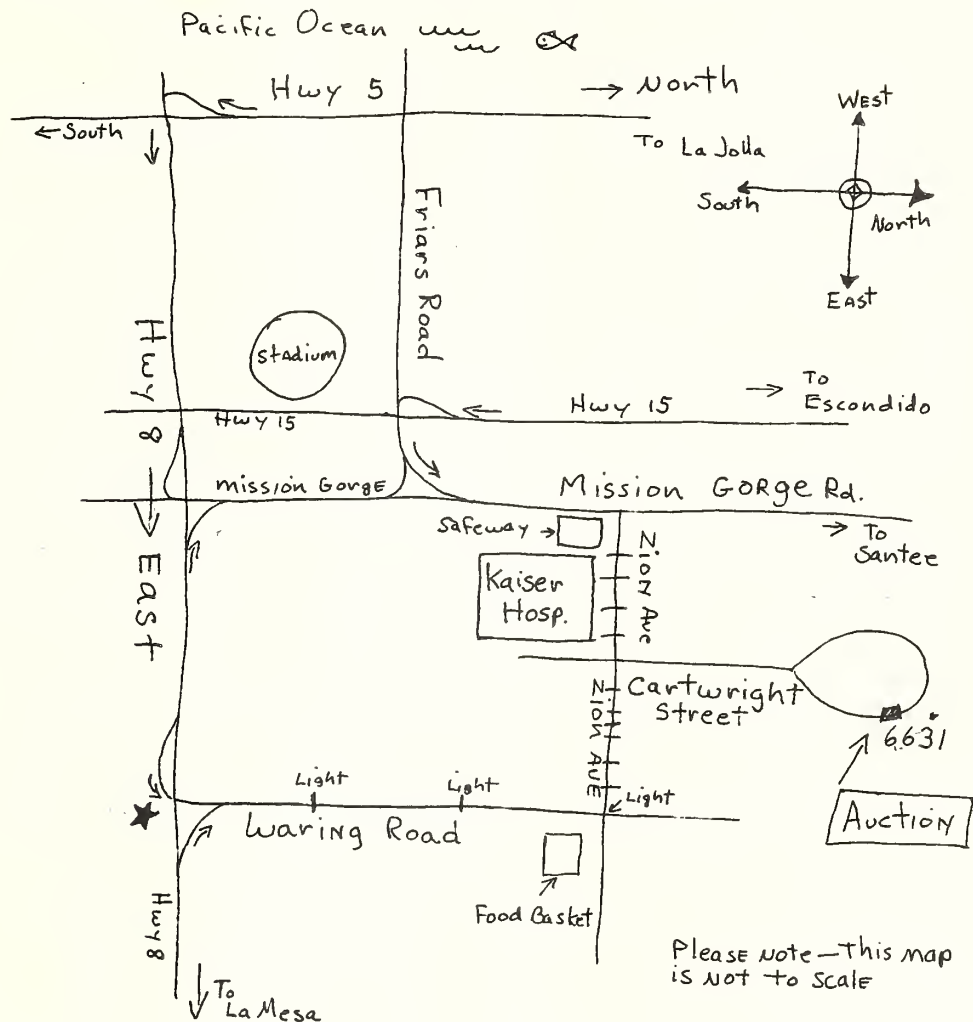 Pacific Ocean
Hwy 5
→ North
← South
To La Jolla
West
South
North
East
Friars Road
Stadium
Hwy 8 → East
Hwy 15
Hwy 15
→ To
Escondido
Mission Gorge
Mission Gorge Rd.
→ To
Santee
Safeway →
Zion Ave
Kaiser
Hosp.
Cartwright
Street
Zion Ave
6631
Auction
Light
Light
Light
Waring Road
Food Basket
Hwy 8
To
La Mesa
Please note — This map
is not to scale